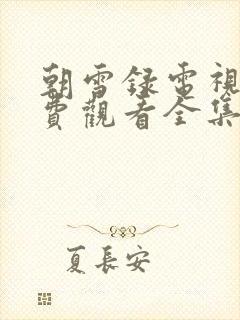 朝雪錄電視
費觀看全集
夏長安